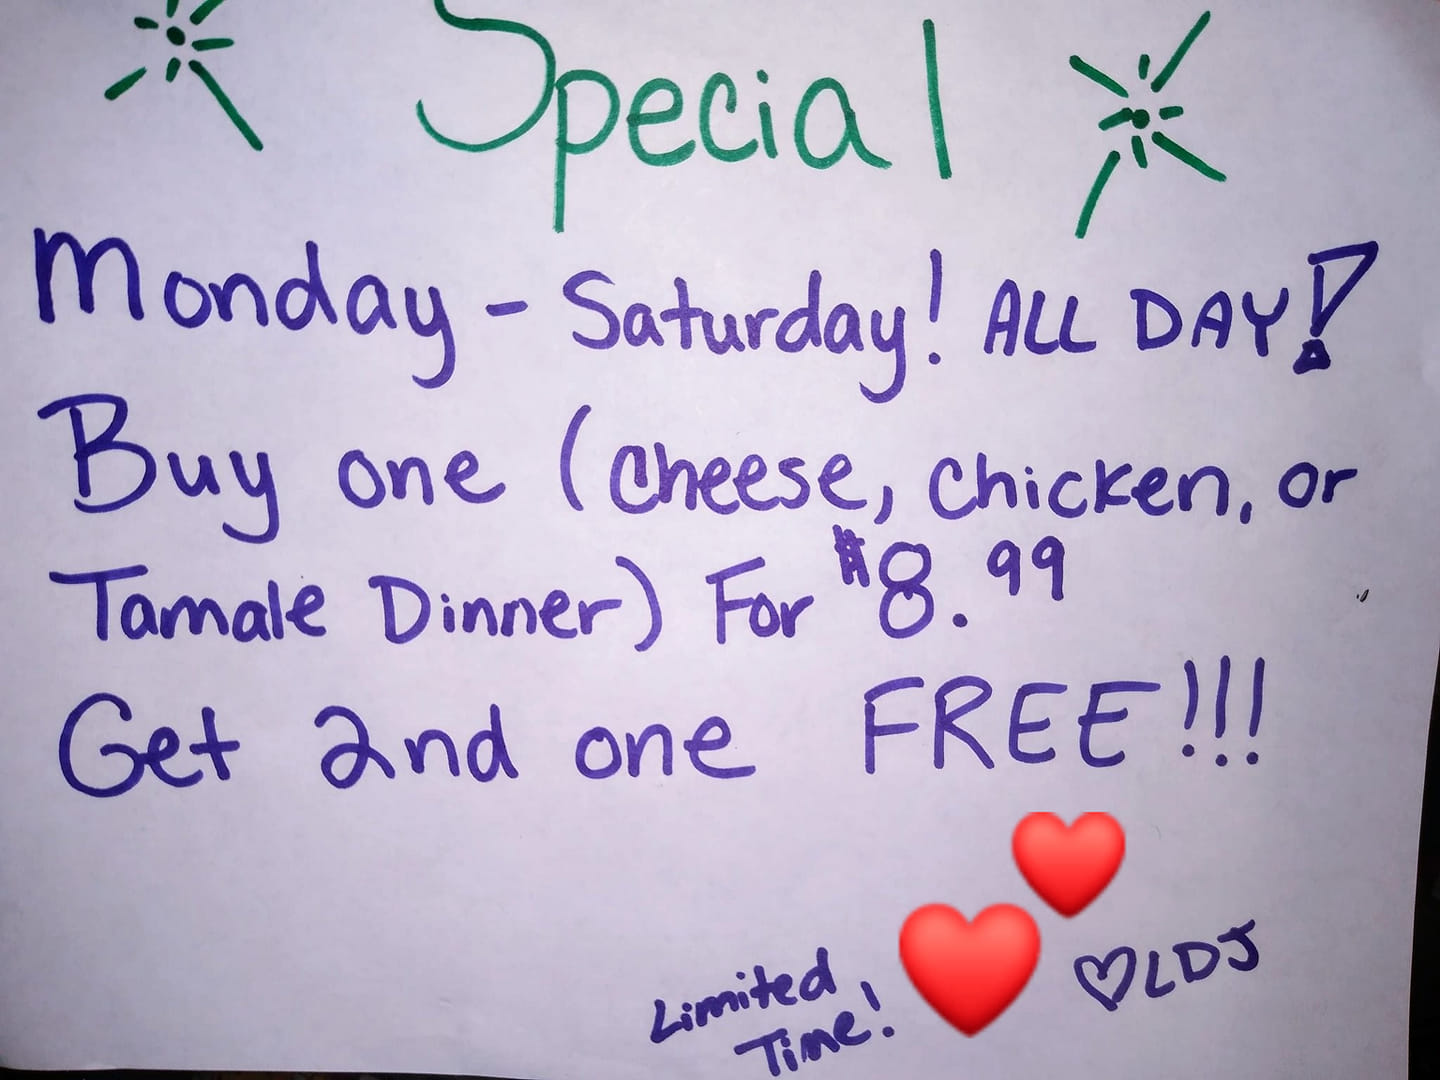 Special
Monday - Saturday! ALL DAY!
Buy one (cheese, chicken, or
Tamale Dinner) For $8.99
Get 2nd one FREE!!!
Limited
Time!
♡LDJ